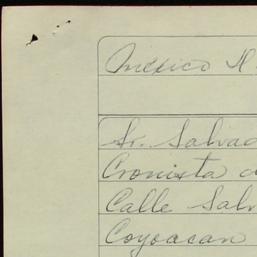 Mexico D
Sr. Salvad
Cronista d
Calle Salv
Coyoacan